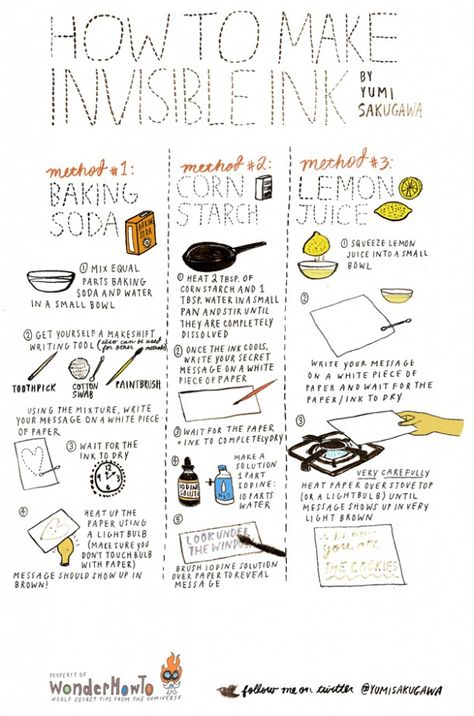 HOW TO MAKE
INVISIBLE INK
BY
YUMI
SAKUGAWA
method #1:
BAKING
SODA
BAKING
SODA
① MIX EQUAL
PARTS BAKING
SODA AND WATER
IN A SMALL BOWL
② GET YOURSELF A MAKESHIFT
WRITING TOOL (also can be used
for other methods)
TOOTHPICK
COTTON
SWAB
PAINTBRUSH
USING THE MIXTURE, WRITE
YOUR MESSAGE ON A WHITE PIECE
OF PAPER
③ WAIT FOR THE
INK TO DRY
④ HEAT UP THE
PAPER USING
A LIGHTBULB
(MAKE SURE YOU
DON'T TOUCH BULB
WITH PAPER)
MESSAGE SHOULD SHOW UP IN
BROWN!
method #2:
CORN
STARCH
① HEAT 2 TBSP. OF
CORNSTARCH AND 1
TBSP. WATER IN A SMALL
PAN AND STIR UNTIL
THEY ARE COMPLETELY
DISSOLVED
② ONCE THE INK COOLS,
WRITE YOUR SECRET
MESSAGE ON A WHITE
PIECE OF PAPER
③ WAIT FOR THE PAPER
+ INK TO COMPLETELY DRY
④ MAKE A
SOLUTION
1 PART
IODINE:
10 PARTS
WATER
IODINE
SOLUTION
H₂O
⑤
LOOK UNDER
THE WINDOW
BRUSH IODINE SOLUTION
OVER PAPER TO REVEAL
MESSAGE
method #3:
LEMON
JUICE
① SQUEEZE LEMON
JUICE INTO A SMALL
BOWL
②
WRITE YOUR MESSAGE
ON A WHITE PIECE OF
PAPER AND WAIT FOR THE
PAPER/INK TO DRY
③
VERY CAREFULLY
HEAT PAPER OVER STOVETOP
(OR A LIGHTBULB) UNTIL
MESSAGE SHOWS UP IN VERY
LIGHT BROWN
you ate
THE COOKIES
PROPERTY OF
WonderHowTo
WORLD SECRET TIPS FROM THE YUMIVERSE
follow me on twitter @YUMISAKUGAWA